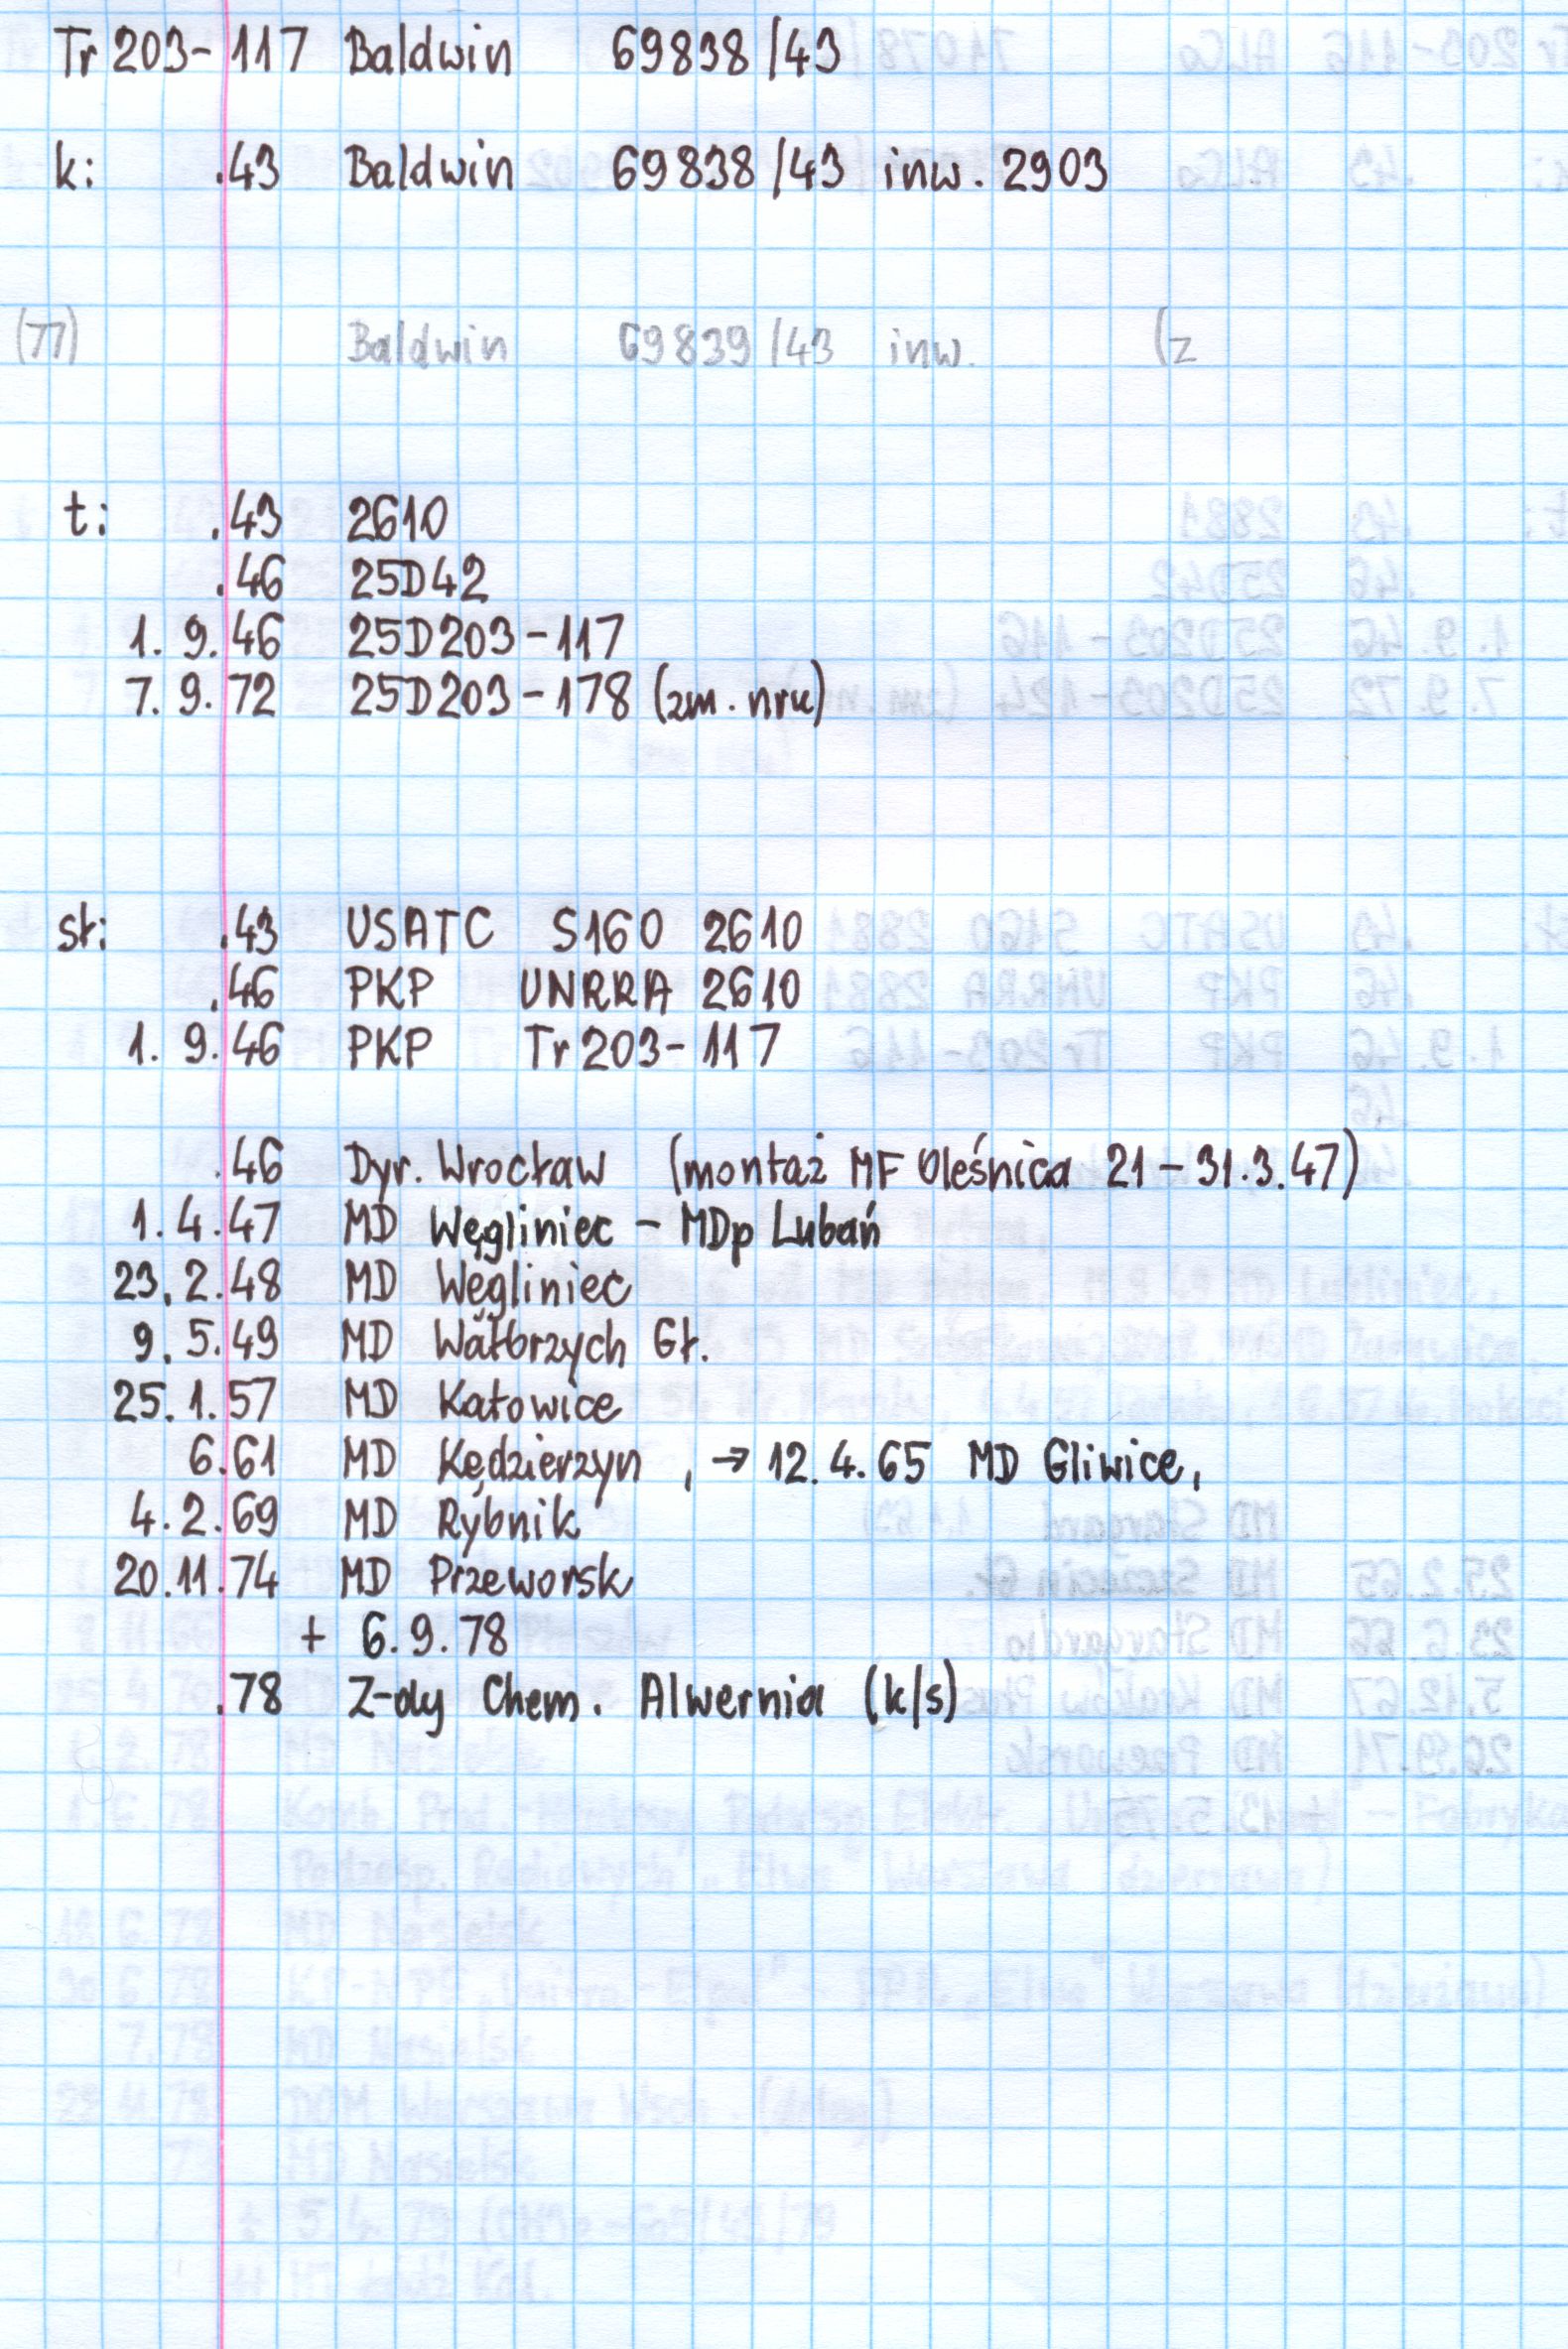 Tr 203-117 Baldwin 69838/43
k: .43 Baldwin 69838/43 inw. 2903
(77) Baldwin 69839/43 inw. (z
t: .43 2610
.46 25D42
1. 9.46 25D203-117
7. 9.72 25D203-178 (zm. nru)
sł: .43 USATC S160 2610
.46 PKP UNRRA 2610
1. 9.46 PKP Tr 203-117
.46 Dyr. Wrocław (montaż MF Oleśnica 21-31.3.47)
1.4.47 MD Węgliniec - MDp Lubań
23.2.48 MD Węgliniec
9.5.49 MD Wałbrzych Gł.
25.1.57 MD Katowice
6.61 MD Kędzierzyn, → 12.4.65 MD Gliwice,
4.2.69 MD Rybnik
20.11.74 MD Przeworsk
+ 6.9.78
.78 Z-dy Chem. Alwernia (k/s)